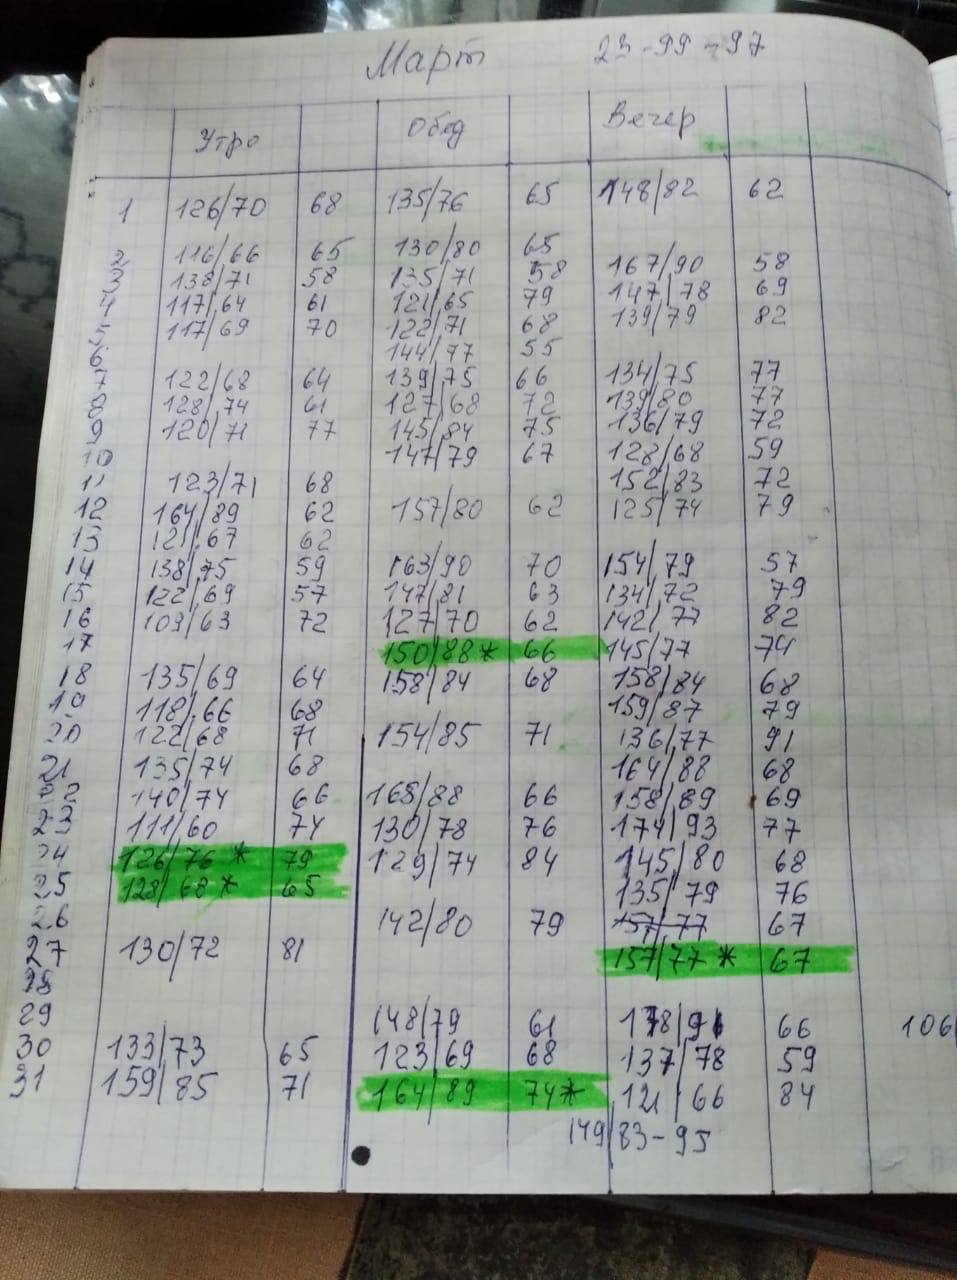 Март 23-99-97
Утро Обед Вечер
1 126/70 68 135/76 65 148/82 62
2 116/66 65 130/80 65
3 138/71 58 135/71 58 167/90 58
4 117/64 61 121/65 79 147/78 69
5 117/69 70 122/71 68 139/79 82
6 144/77 55
7 122/68 64 139/75 66 134/75 77
8 128/74 61 127/68 72 139/80 77
9 120/71 77 145/84 75 136/79 72
10 147/79 67 128/68 59
11 123/71 68 152/83 72
12 164/89 62 157/80 62 125/74 79
13 121/67 62
14 138/75 59 163/90 70 154/79 57
15 122/69 57 147/81 63 134/72 79
16 109/63 72 127/70 62 142/77 82
17 150/88* 66 145/77 74
18 135/69 64 158/84 68 158/84 68
19 118/66 68 159/87 79
20 122/68 71 154/85 71 136/77 91
21 135/74 68 164/88 68
22 140/74 66 168/88 66 158/89 69
23 111/60 74 130/78 76 174/93 77
24 126/76* 79 129/74 84 145/80 68
25 128/68* 65 135/79 76
26 142/80 79 157/77 67
27 130/72 81 157/77* 67
28
29 148/79 61 178/91 66 106
30 133/73 65 123/69 68 137/78 59
31 159/85 71 164/89 74* 121/66 84
149/83-95